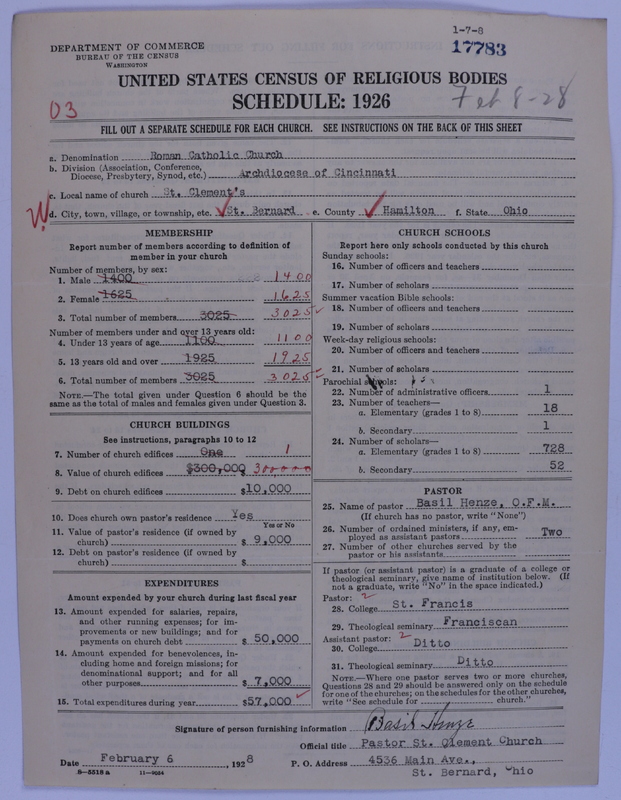 1-7-8
17783
DEPARTMENT OF COMMERCE
BUREAU OF THE CENSUS
WASHINGTON
UNITED STATES CENSUS OF RELIGIOUS BODIES
SCHEDULE: 1926
Feb 8-28
03
FILL OUT A SEPARATE SCHEDULE FOR EACH CHURCH. SEE INSTRUCTIONS ON THE BACK OF THIS SHEET
a. Denomination Roman Catholic Church
b. Division (Association, Conference, Diocese, Presbytery, Synod, etc.) Archdiocese of Cincinnati
c. Local name of church St. Clement's
W d. City, town, village, or township, etc. St. Bernard e. County Hamilton f. State Ohio
MEMBERSHIP
Report number of members according to definition of
member in your church
Number of members, by sex:
1. Male 1400 1400
2. Female 1625 1625
3. Total number of members 3025 3025
Number of members under and over 13 years old:
4. Under 13 years of age 1100 1100
5. 13 years old and over 1925 1925
6. Total number of members 3025 3025
NOTE.—The total given under Question 6 should be
same as the total of males and females given under Question 3.
CHURCH BUILDINGS
See instructions, paragraphs 10 to 12
7. Number of church edifices One 1
8. Value of church edifices $300,000 $300000
9. Debt on church edifices $10,000
10. Does church own pastor's residence Yes
Yes or No
11. Value of pastor's residence (if owned by
church) $ 9,000
12. Debt on pastor's residence (if owned by
church) $
EXPENDITURES
Amount expended by your church during last fiscal year
13. Amount expended for salaries, repairs,
and other running expenses; for im-
provements or new buildings; and for
payments on church debt $ 50,000
14. Amount expended for benevolences, in-
cluding home and foreign missions; for
denominational support; and for all
other purposes $ 7,000
15. Total expenditures during year $57,000
CHURCH SCHOOLS
Report here only schools conducted by this church
Sunday schools:
16. Number of officers and teachers
17. Number of scholars
Summer vacation Bible schools:
18. Number of officers and teachers
19. Number of scholars
Week-day religious schools:
20. Number of officers and teachers
21. Number of scholars
Parochial schools:
22. Number of administrative officers 1
23. Number of teachers—
a. Elementary (grades 1 to 8) 18
b. Secondary 1
24. Number of scholars—
a. Elementary (grades 1 to 8) 728
b. Secondary 52
PASTOR
25. Name of pastor Basil Henze, O.F.M.
(If church has no pastor, write "None")
26. Number of ordained ministers, if any, em-
ployed as assistant pastors Two
27. Number of other churches served by the
pastor or his assistants
If pastor (or assistant pastor) is a graduate of a college or
theological seminary, give name of institution below. (If
not a graduate, write "No" in the space indicated.)
Pastor: 2
28. College St. Francis
29. Theological seminary Franciscan
Assistant pastor: 2
30. College Ditto
31. Theological seminary Ditto
NOTE.—Where one pastor serves two or more churches,
Questions 28 and 29 should be answered only on the schedule
for one of the churches; on the schedules for the other churches,
write "See schedule for church."
Signature of person furnishing information Basil Henze
Official title Pastor St. Clement Church
Date February 6, 1928 P. O. Address 4536 Main Ave.,
St. Bernard, Ohio
8-5518 a 11-9054